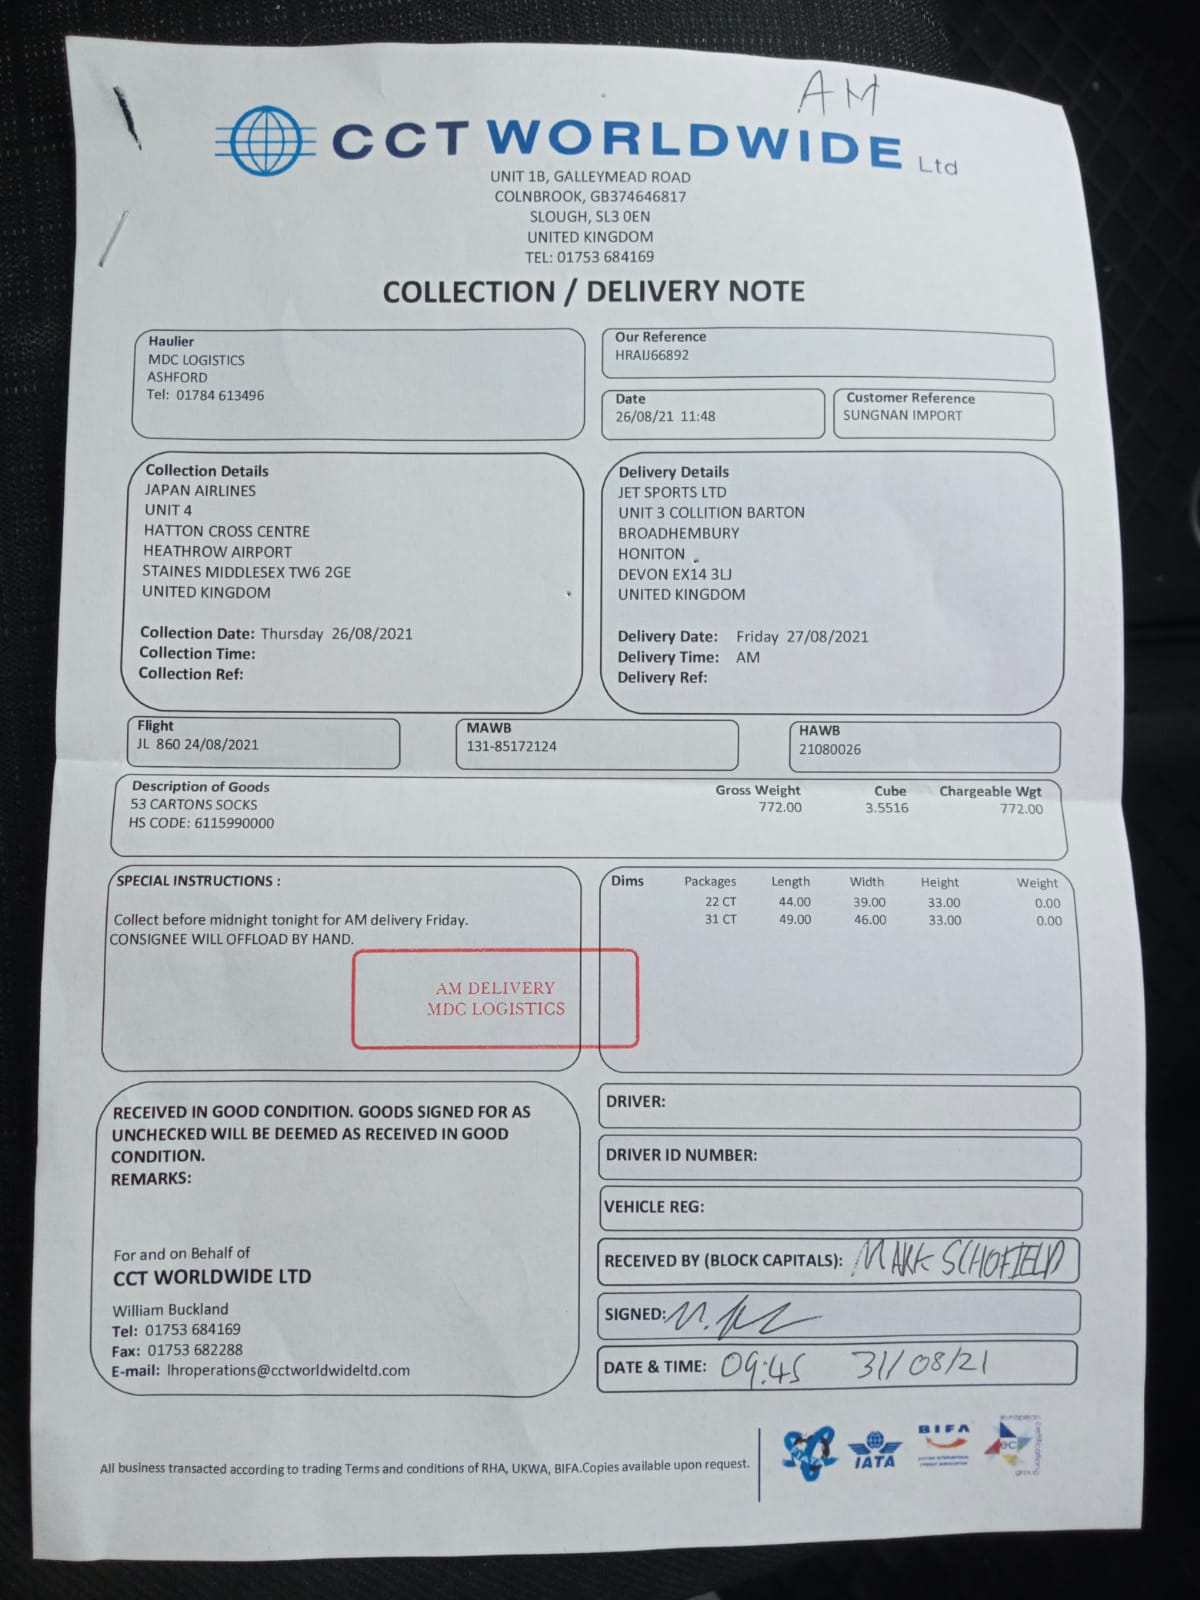 AM
CCT WORLDWIDE Ltd
UNIT 1B, GALLEYMEAD ROAD
COLNBROOK, GB374646817
SLOUGH, SL3 0EN
UNITED KINGDOM
TEL: 01753 684169
COLLECTION / DELIVERY NOTE
Haulier
MDC LOGISTICS
ASHFORD
Tel: 01784 613496
Our Reference
HRAIJ66892
Date
26/08/21 11:48
Customer Reference
SUNGNAN IMPORT
Collection Details
JAPAN AIRLINES
UNIT 4
HATTON CROSS CENTRE
HEATHROW AIRPORT
STAINES MIDDLESEX TW6 2GE
UNITED KINGDOM
Collection Date: Thursday 26/08/2021
Collection Time:
Collection Ref:
Delivery Details
JET SPORTS LTD
UNIT 3 COLLITION BARTON
BROADHEMBURY
HONITON
DEVON EX14 3LJ
UNITED KINGDOM
Delivery Date: Friday 27/08/2021
Delivery Time: AM
Delivery Ref:
Flight
JL 860 24/08/2021
MAWB
131-85172124
HAWB
21080026
Description of Goods Gross Weight Cube Chargeable Wgt
53 CARTONS SOCKS 772.00 3.5516 772.00
HS CODE: 6115990000
SPECIAL INSTRUCTIONS :
Collect before midnight tonight for AM delivery Friday.
CONSIGNEE WILL OFFLOAD BY HAND.
AM DELIVERY
MDC LOGISTICS
Dims Packages Length Width Height Weight
22 CT 44.00 39.00 33.00 0.00
31 CT 49.00 46.00 33.00 0.00
RECEIVED IN GOOD CONDITION. GOODS SIGNED FOR AS
UNCHECKED WILL BE DEEMED AS RECEIVED IN GOOD
CONDITION.
REMARKS:
For and on Behalf of
CCT WORLDWIDE LTD
William Buckland
Tel: 01753 684169
Fax: 01753 682288
E-mail: lhroperations@cctworldwideltd.com
DRIVER:
DRIVER ID NUMBER:
VEHICLE REG:
RECEIVED BY (BLOCK CAPITALS): MARK SCHOFIELD
SIGNED:
DATE & TIME: 09:45 31/08/21
All business transacted according to trading Terms and conditions of RHA, UKWA, BIFA.Copies available upon request.
IATA
BIFA
european
ec
group